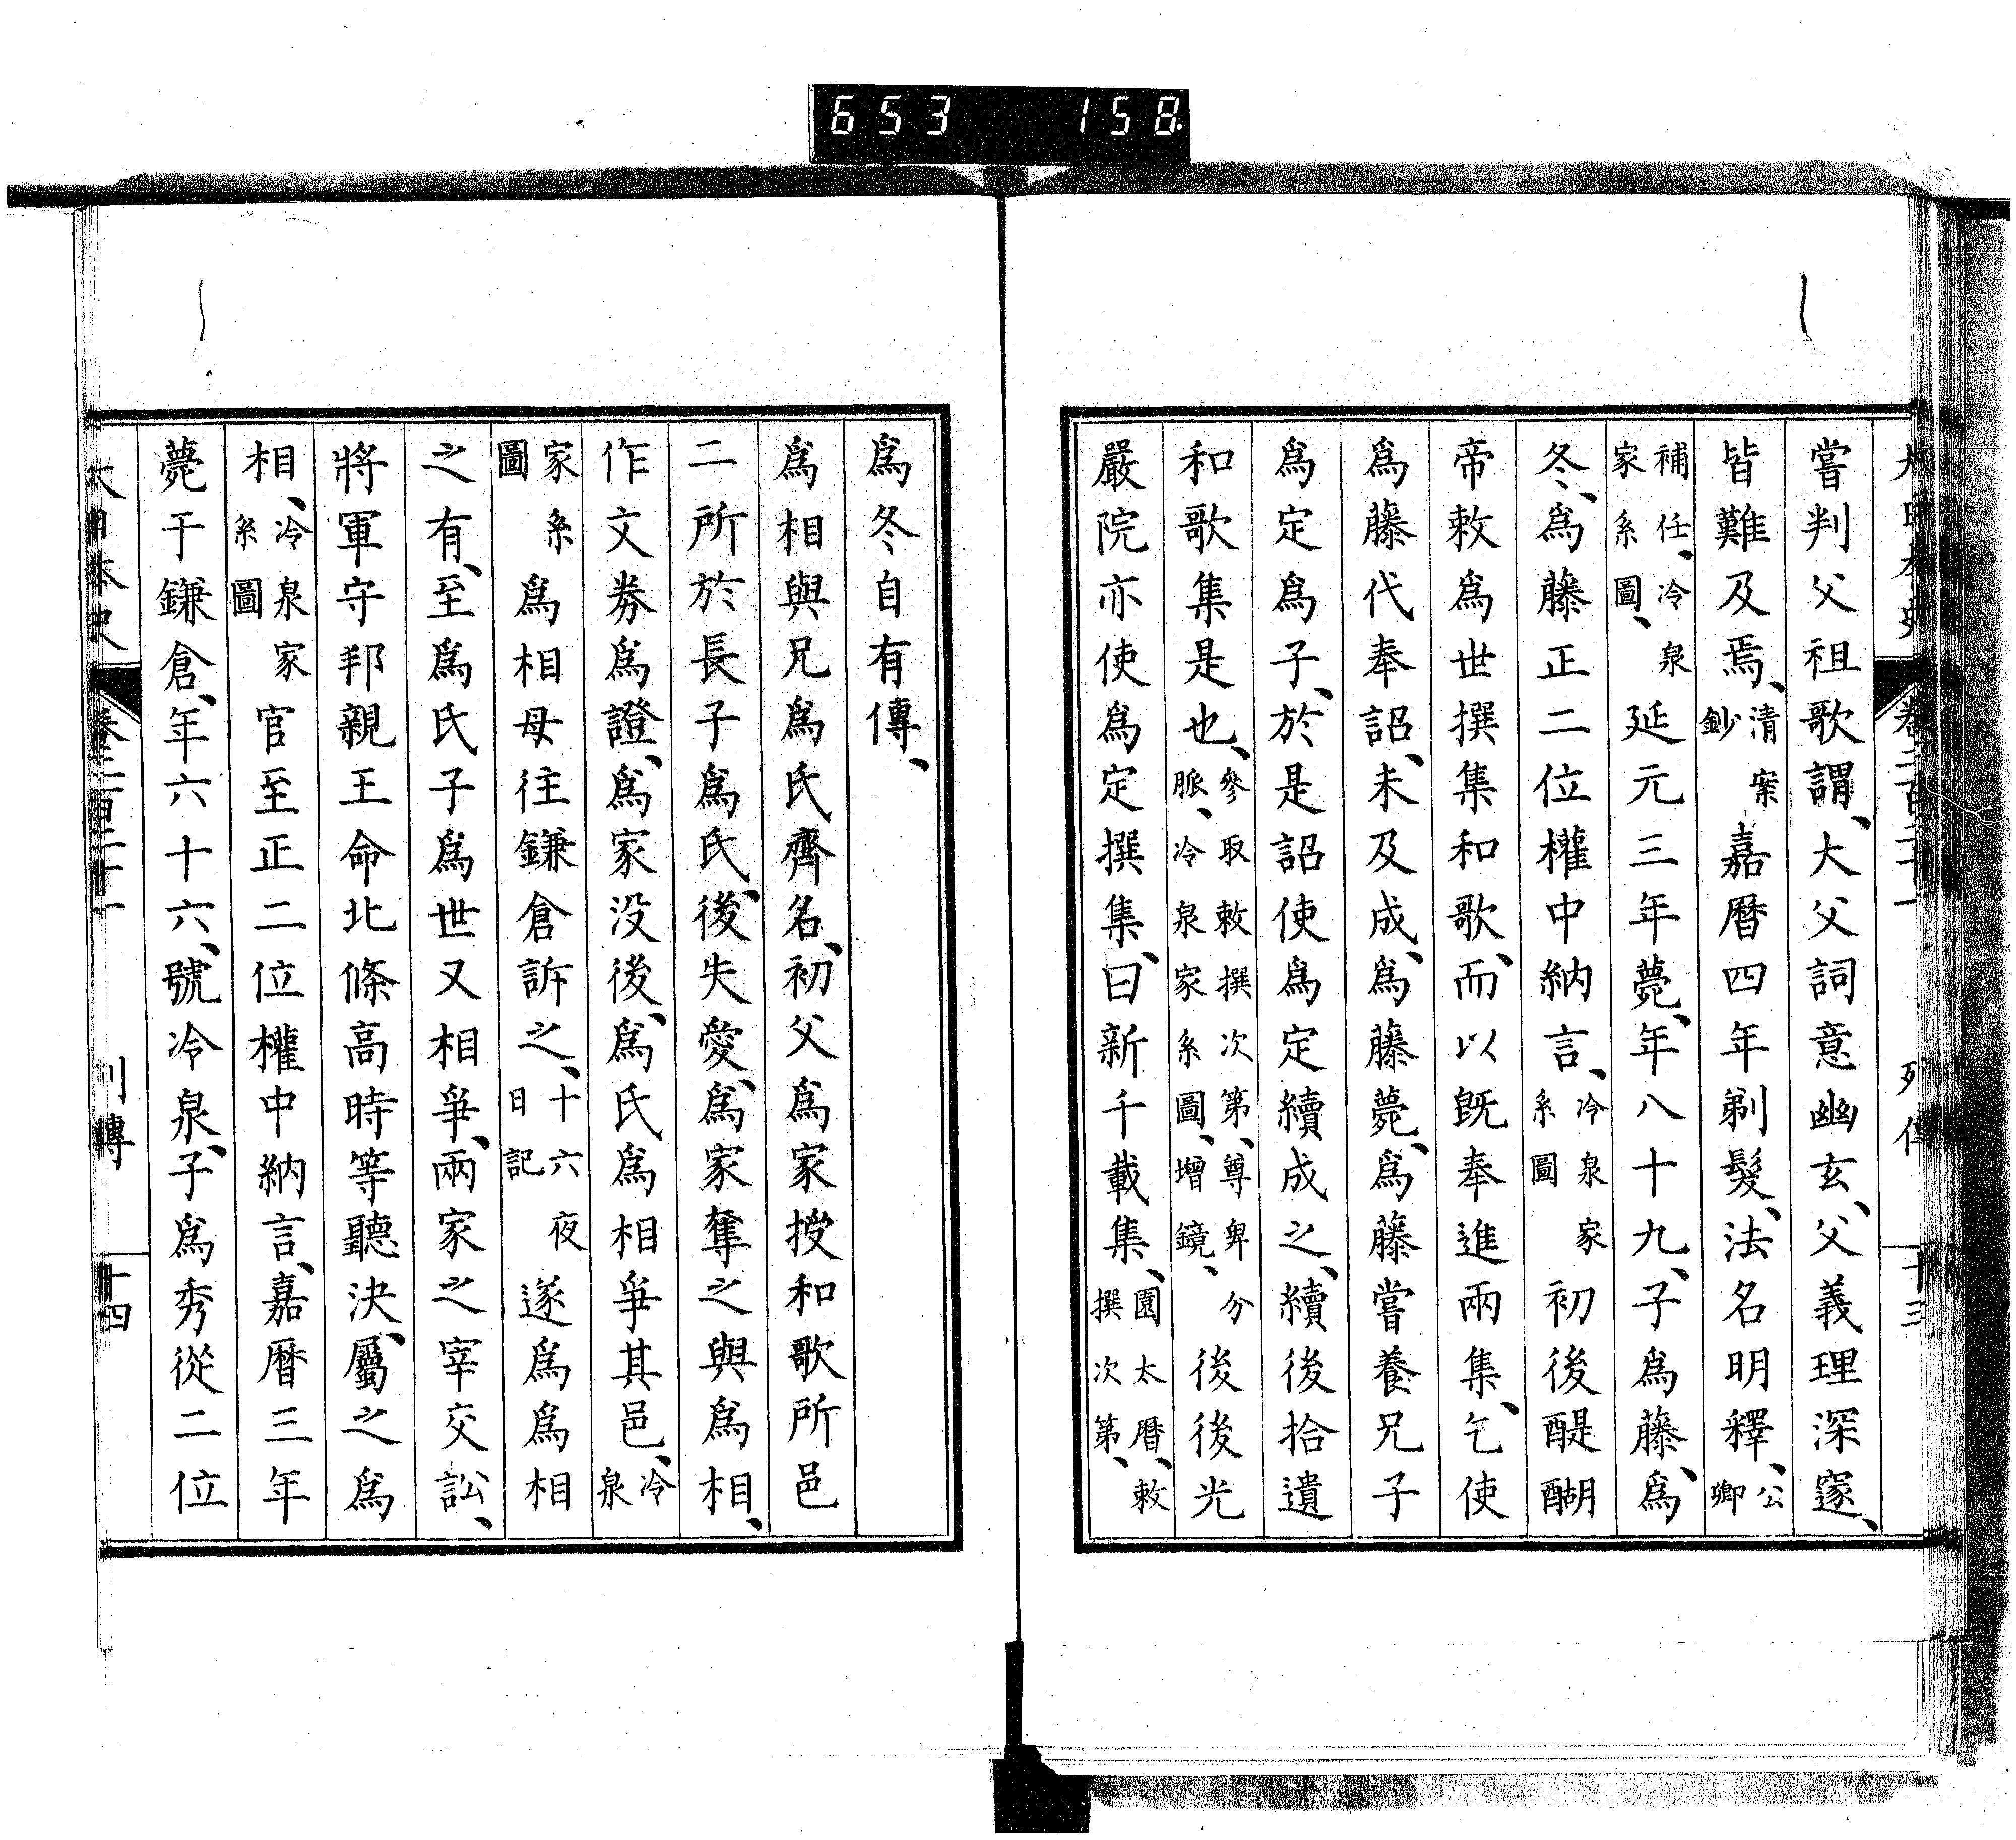 653 158.
大日本史 卷二百二十一 列傳 十三
嘗判父祖歌謂、大父詞意幽玄、父義理深窪、
皆難及焉、清案鈔嘉曆四年剃髮、法名明釋、公卿
補任、冷泉家系圖、延元三年薨、年八十九、子爲藤、爲
冬、爲藤正二位權中納言、冷泉家系圖初後醍醐
帝敕爲世撰集和歌、而以既奉進兩集、乞使
爲藤代奉詔、未及成、爲藤薨、爲藤嘗養兄子
爲定爲子、於是詔使爲定續成之、續後拾遺
和歌集是也、參取敕撰次第、尊卑分脈、冷泉家系圖、增鏡、後後光
嚴院亦使爲定撰集、曰新千載集、園太曆、敕撰次第、
爲冬自有傳、
爲相與兄爲氏齊名、初父爲家授和歌所邑
二所於長子爲氏、後失愛、爲家奪之與爲相、
作文券爲證、爲家没後、爲氏爲相爭其邑、冷泉
家系圖爲相母往鎌倉訴之、十六夜日記遂爲爲相
之有、至爲氏子爲世又相爭、兩家之宰交訟、
將軍守邦親王命北條高時等聽決、屬之爲
相、冷泉家系圖官至正二位權中納言、嘉曆三年
薨于鎌倉、年六十六、號冷泉、子爲秀從二位
大日本史 卷二百二十一 列傳 十四